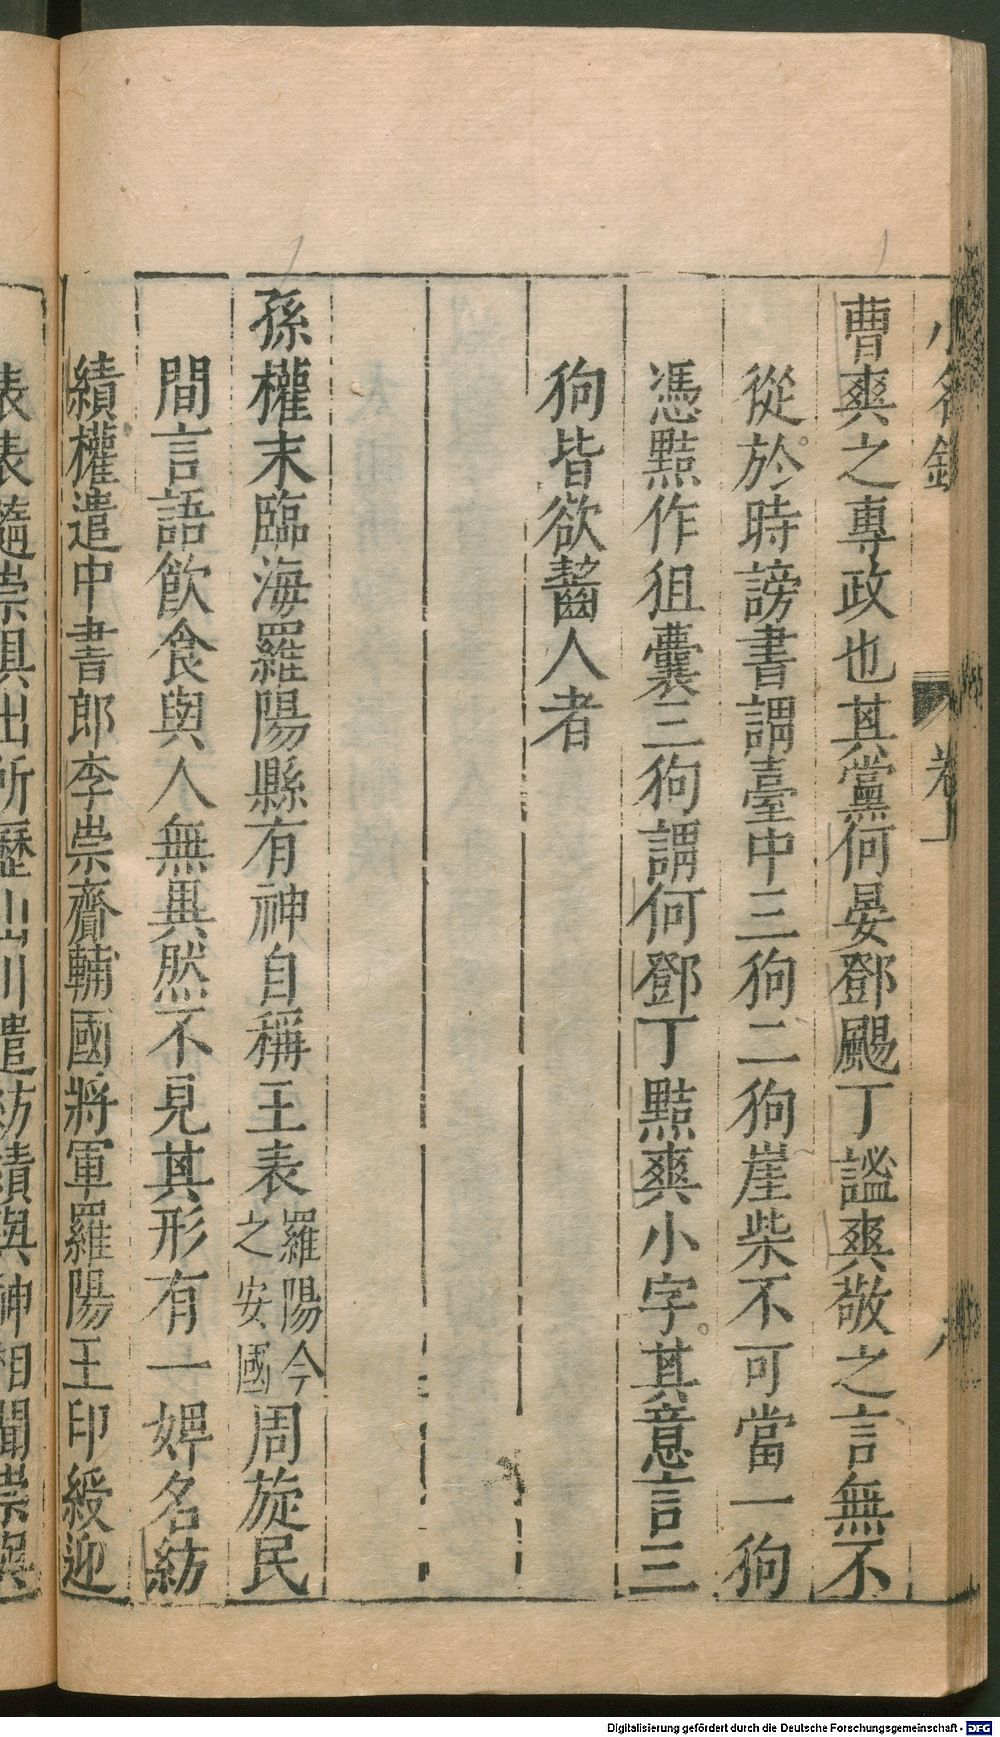 小名錄 卷上
曹爽之專政也其黨何晏鄧颺丁謐爽敬之言無不
從於時謗書謂臺中三狗二狗崖柴不可當一狗
憑㸃作狙囊三狗謂何鄧丁㸃爽小字其意言三
狗皆欲齧人者
孫權末臨海羅陽縣有神自稱王表羅陽今之安國周旋民
間言語飲食與人無異然不見其形有一婢名紡
績權遣中書郎李崇齎輔國將軍羅陽王印綬迎
表表隨崇俱出所歷山川遣紡績與神相聞崇與
Digitalisierung gefördert durch die Deutsche Forschungsgemeinschaft - DFG